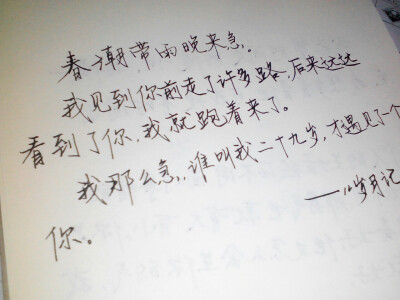 春潮带雨晚来急.
我见到你前走了许多路,后来远远
看到了你,我就跑着来了。
我那么急,谁叫我二十九岁,才遇见了一个
你。
岁月记